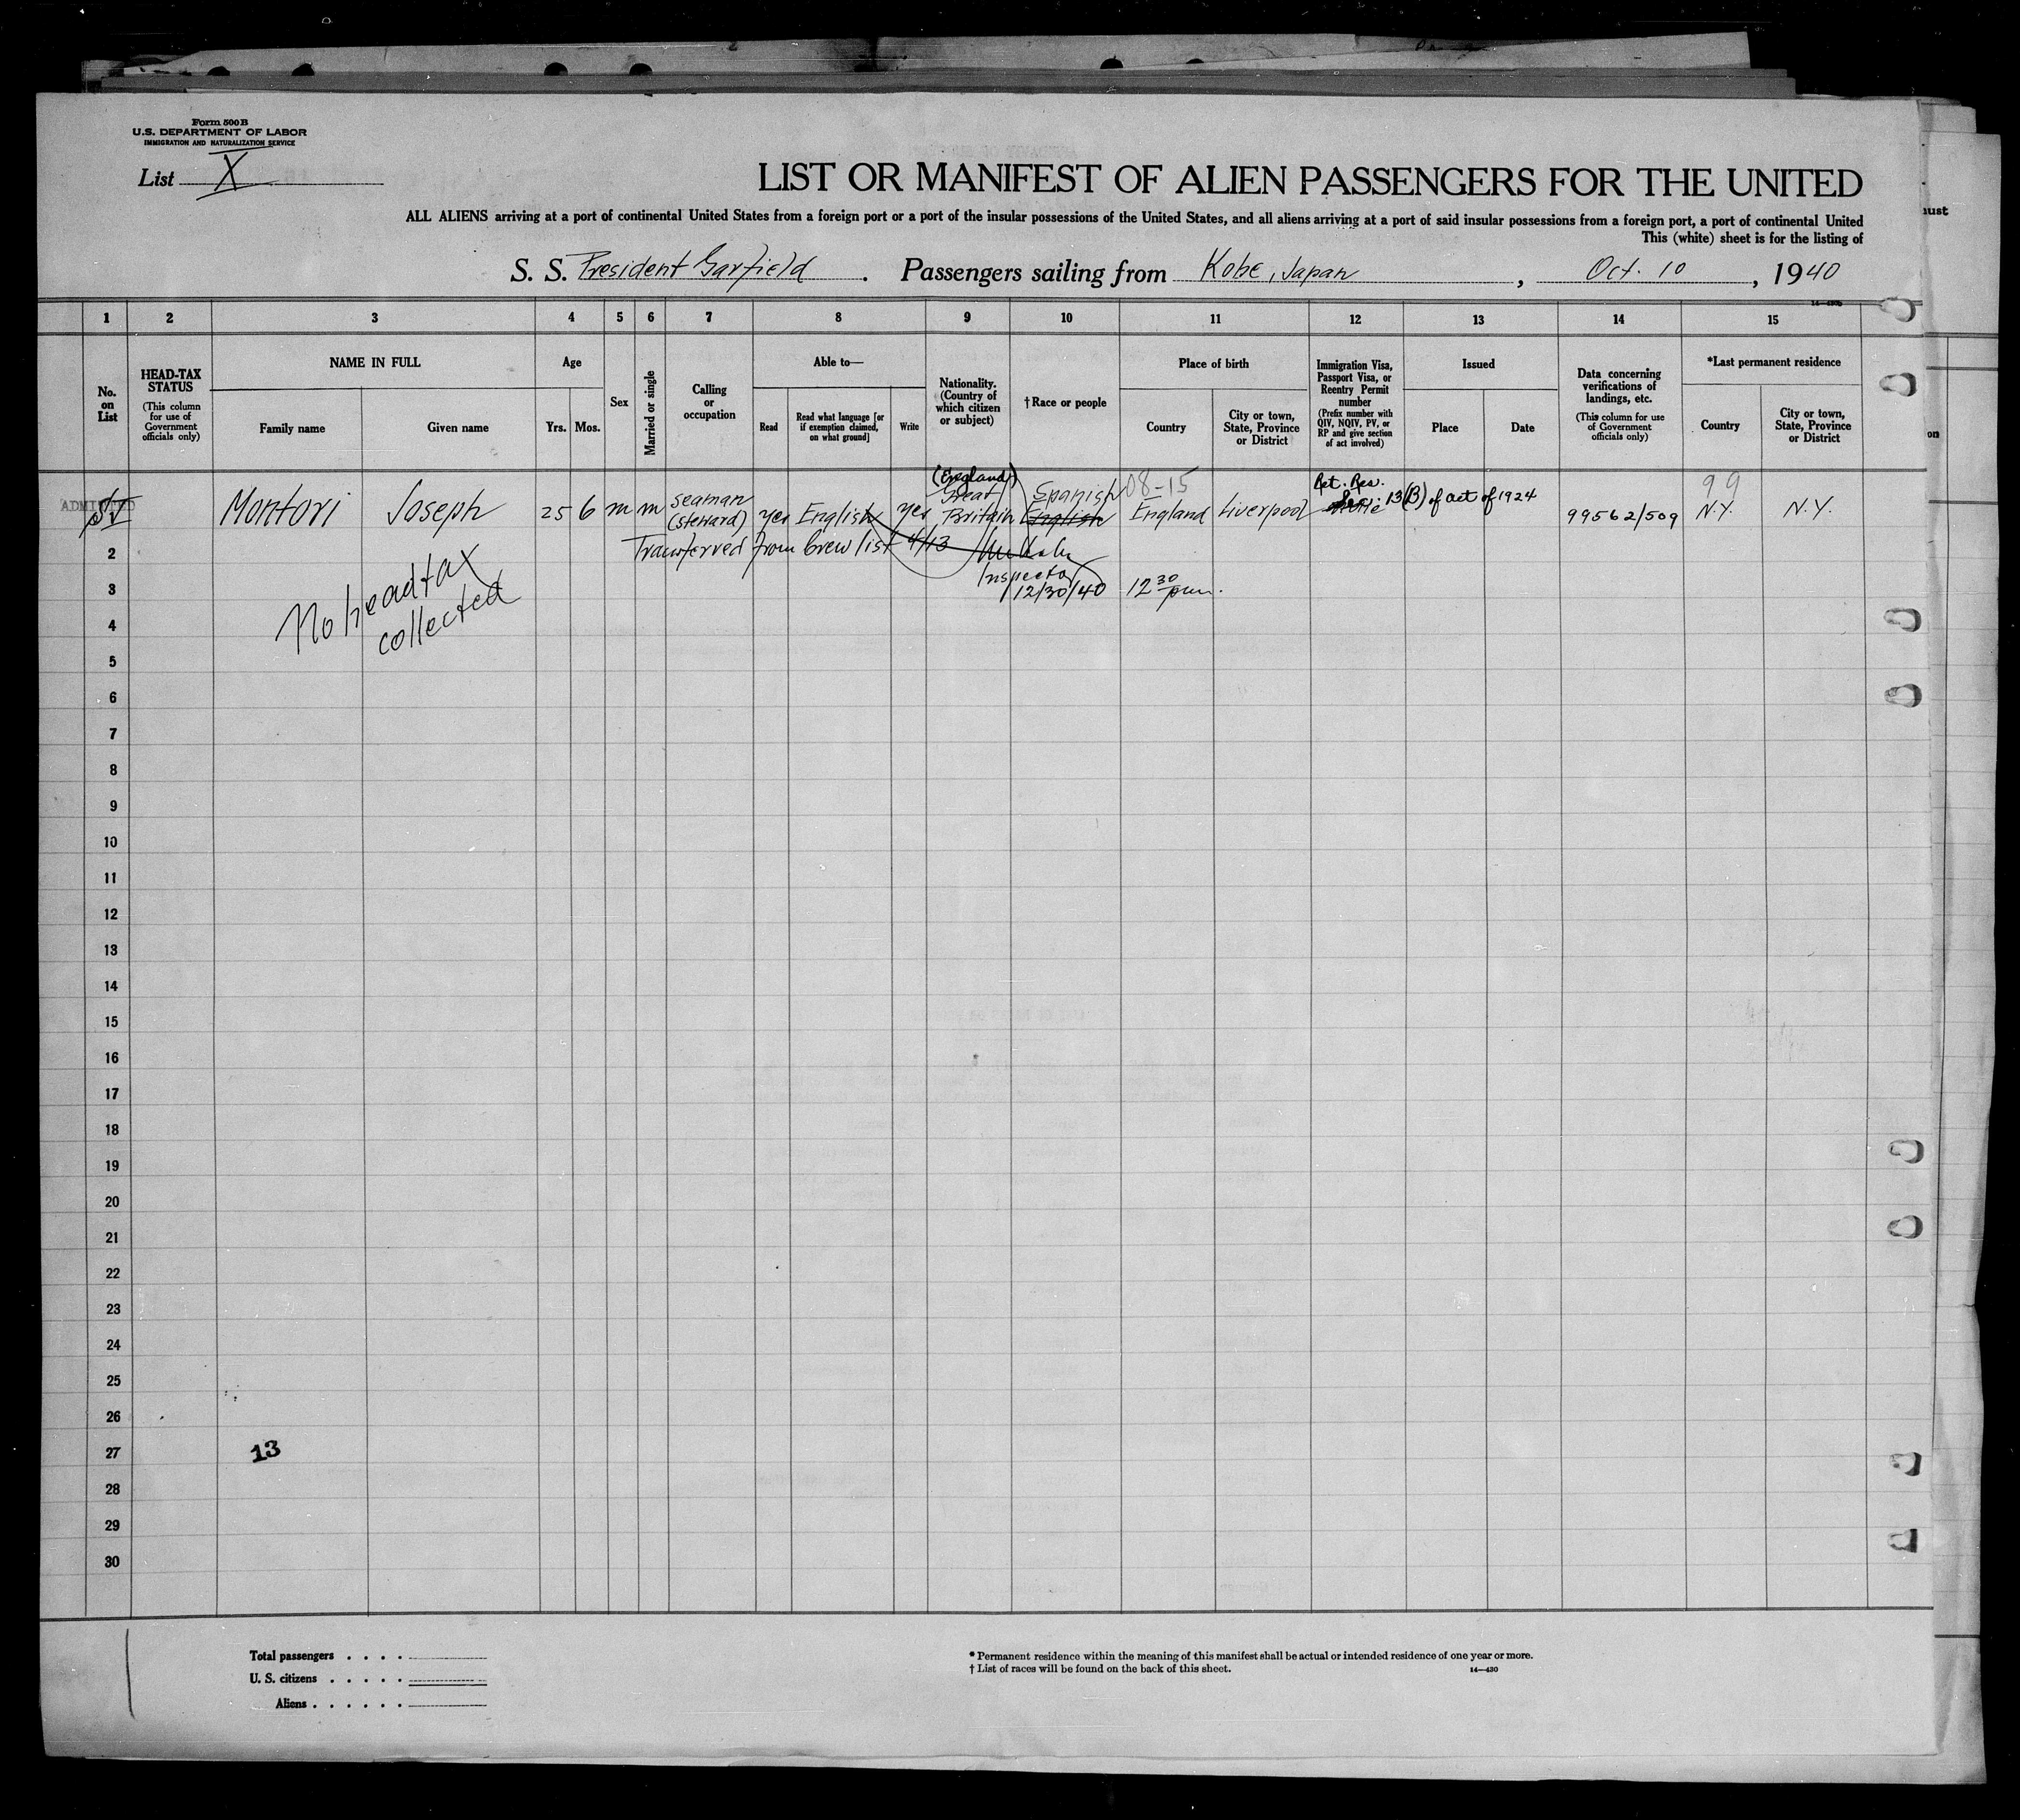 Form 500 B
U.S. DEPARTMENT OF LABOR
IMMIGRATION AND NATURALIZATION SERVICE
List X
LIST OR MANIFEST OF ALIEN PASSENGERS FOR THE UNITED
ALL ALIENS arriving at a port of continental United States from a foreign port or a port of the insular possessions of the United States, and all aliens arriving at a port of said insular possessions from a foreign port, a port of continental United
This (white) sheet is for the listing of
S. S. President Garfield. Passengers sailing from Kobe, Japan, Oct. 10, 1940
1 2 3 4 5 6 7 8 9 10 11 12 13 14 15
No. on List
HEAD-TAX STATUS
(This column for use of Government officials only)
NAME IN FULL
Family name
Given name
Age
Yrs. Mos.
Sex
Married or single
Calling or occupation
Able to—
Read
Read what language [or if exemption claimed, on what ground]
Write
Nationality. (Country of which citizen or subject)
†Race or people
Place of birth
Country
City or town, State, Province or District
Immigration Visa, Passport Visa, or Reentry Permit number
(Prefix number with QIV, NQIV, PV, or RP and give section of act involved)
Issued
Place
Date
Data concerning verifications of landings, etc.
(This column for use of Government officials only)
*Last permanent residence
Country
City or town, State, Province or District
ADMITTED
Montori Joseph 25 6 m m seaman (steward) yes English yes (England) Great Britain Spanish English 08-15 England Liverpool Ret. Res. 13(B) of act of 1924 99562/509 99 N.Y. N.Y.
2
Transferred from Crew list 4/13
Inspector
3
12/30/40 12 30 pm.
No head tax
collected
4
5
6
7
8
9
10
11
12
13
14
15
16
17
18
19
20
21
22
23
24
25
26
27
13
28
29
30
Total passengers . . . .
U. S. citizens . . . . .
Aliens . . . . . .
* Permanent residence within the meaning of this manifest shall be actual or intended residence of one year or more.
† List of races will be found on the back of this sheet.
14—430